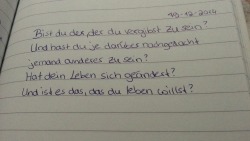 19-12-2014
Bist du der, der du vorgibst zu sein?
Und hast du je darüber nachgedacht
jemand anderes zu sein?
Hat dein Leben sich geändert?
Und ist es das, das du leben willst?